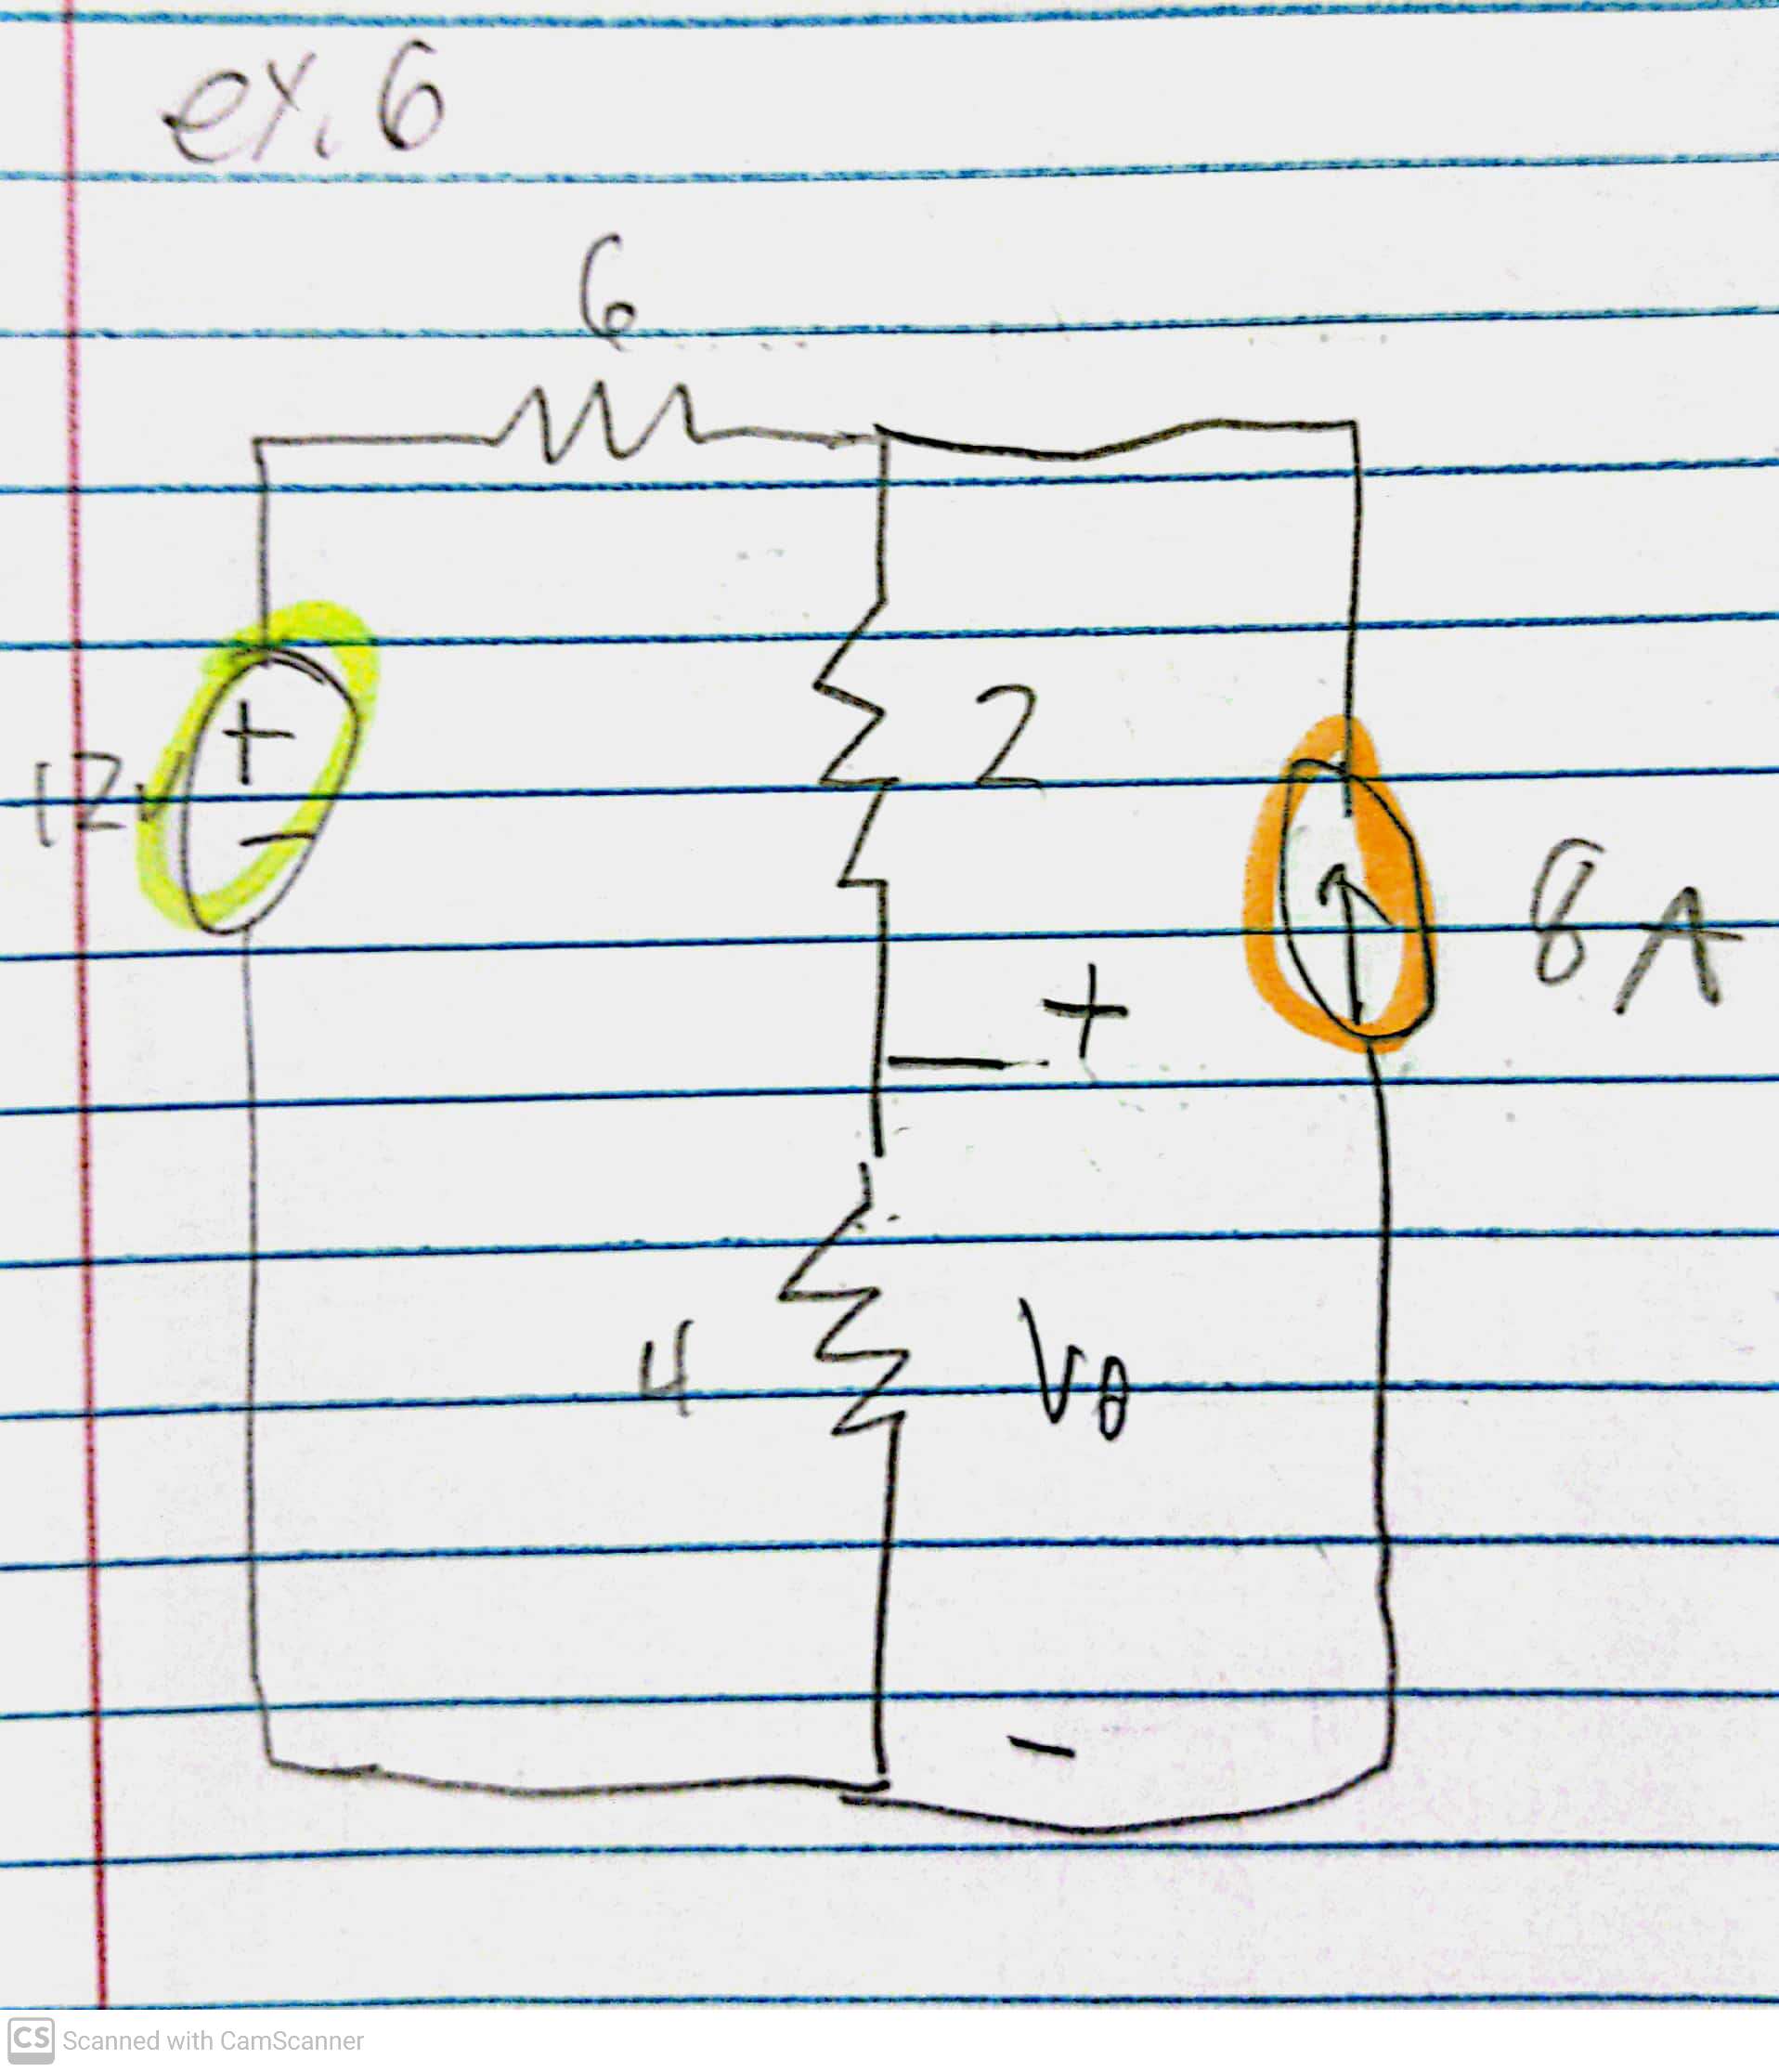 ex. 6
6
12v
+
-
2
8 A
+
4
Vo
-
CS Scanned with CamScanner